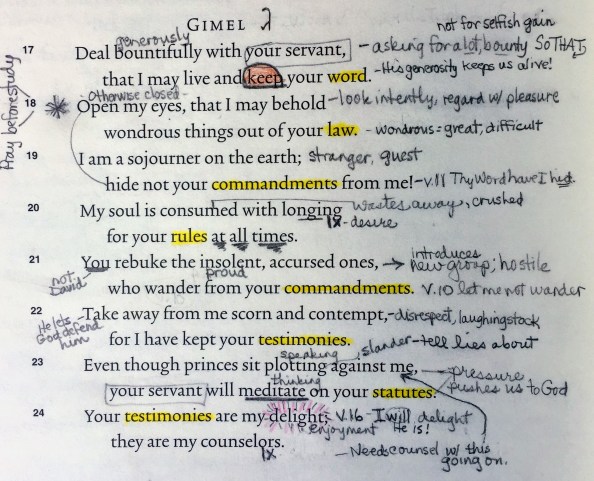 GIMEL ג
not for selfish gain
generously
17 Deal bountifully with your servant, - asking for a lot, bounty SO THAT,
that I may live and keep your word. - His generosity keeps us alive!
Pray before study
Otherwise closed-
18 Open my eyes, that I may behold - look intently, regard w/ pleasure
wondrous things out of your law. - wondrous = great, difficult
19 I am a sojourner on the earth; stranger, guest
hide not your commandments from me! - v.11 Thy Word have I hid.
20 My soul is consumed with longing wastes away, crushed
1x - desire
for your rules at all times.
21 You rebuke the insolent, accursed ones, → introduces new group; hostile
not David
proud
who wander from your commandments. v.10 let me not wander
22 Take away from me scorn and contempt, - disrespect, laughingstock
He lets God defend him
for I have kept your testimonies.
speaking, slander - tell lies about
23 Even though princes sit plotting against me, → pressure pushes us to God
thinking
your servant will meditate on your statutes.
24 Your testimonies are my delight; v.16 - I will delight
enjoyment He is!
they are my counselors.
1x
- Needs counsel w/ this going on.